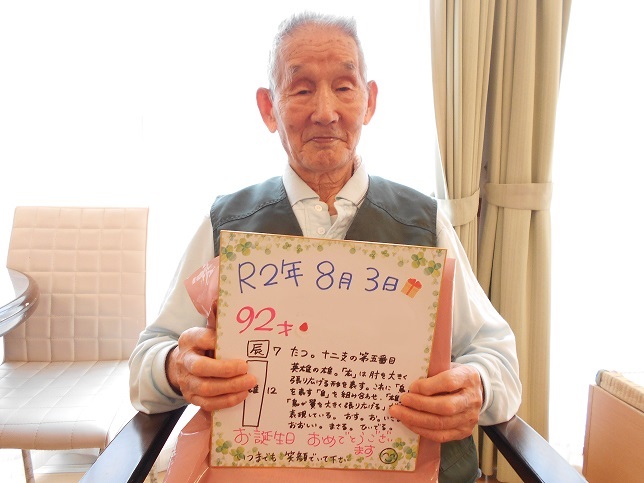 R2年 8月 3日
92才
辰 7 たつ。十二支の第五番目
英雄の雄。「厷」は肘を大きく
雄 12 張り広げる形を表す。これに「鳥」
を表す「隹」を組み合わせ、「雄
鳥が翼を大きく張り広げる」
表現している。おす。お。
おおしい。まさる。ひいでる。
お誕生日 おめでとうござい
ます
いつまでも 笑顔でいて下さい